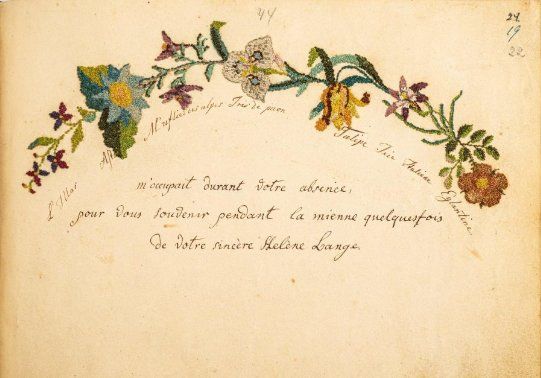 44
24.
19
22
l'Illas
Muflier des alpes
Tulipe
Eglantine
m'occupait durant votre absence,
pour vous souvenir pendant la mienne quelquesfois
de votre sincère Helène Lange.